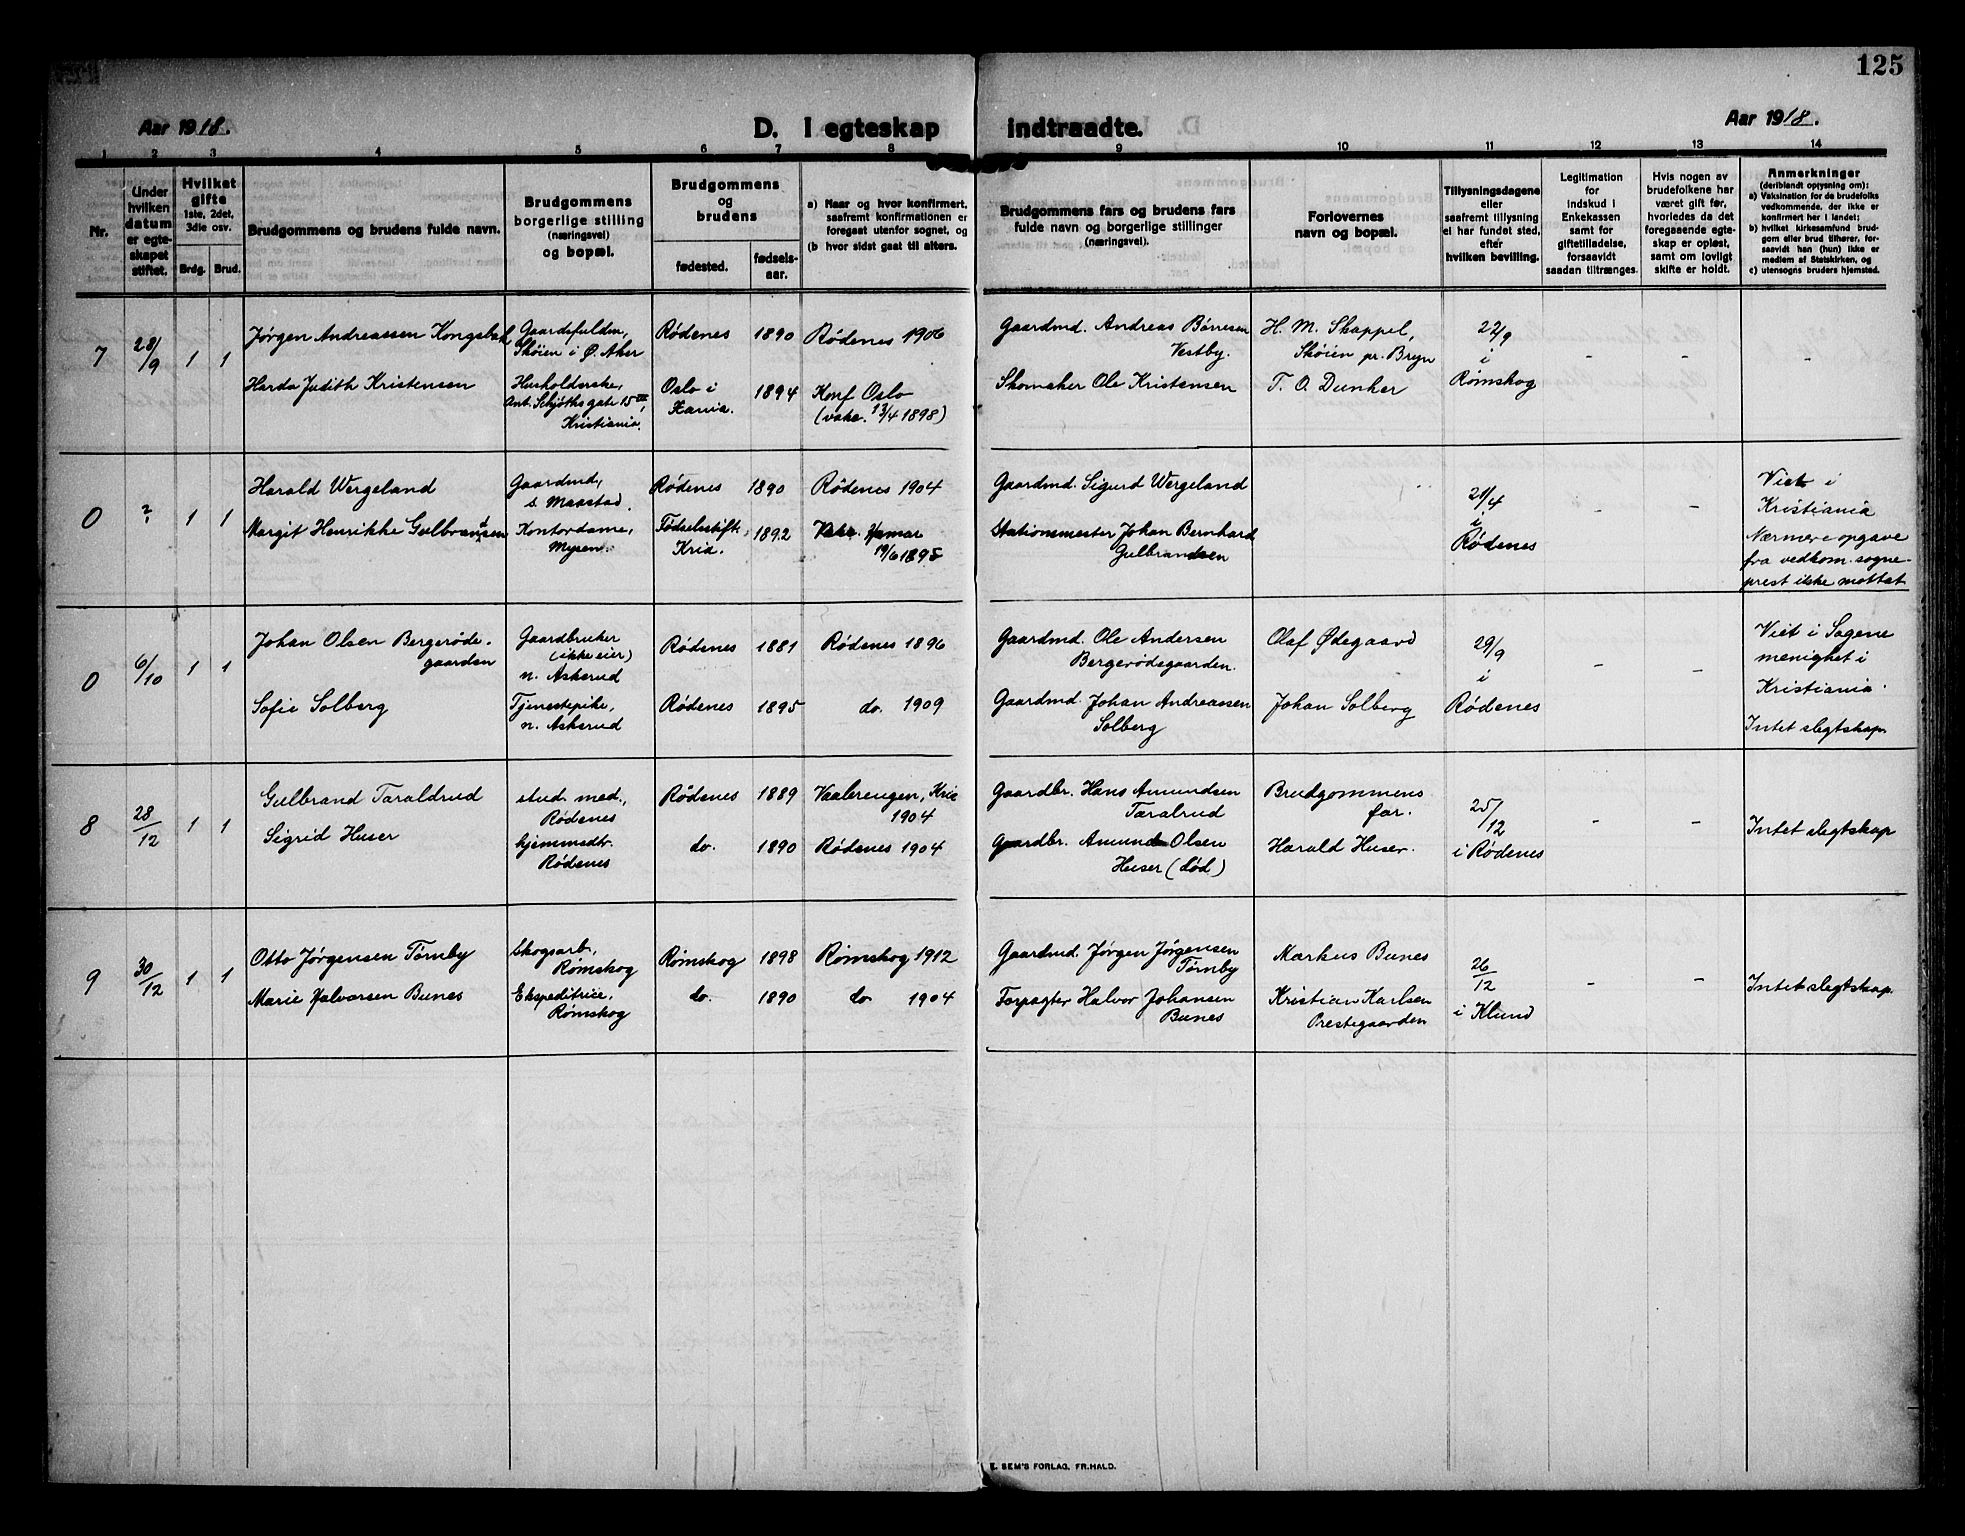 125
Aar 1918.
D. I egteskap indtraadte.
Aar 1918.
1 2 3 4 5 6 7 8 9 10 11 12 13 14
Nr.
Under hvilken datum er egteskapet stiftet.
Hvilket gifte
1ste, 2det, 3die osv.
Brdg. Brud.
Brudgommens og brudens fulde navn.
Brudgommens
borgerlige stilling
(næringsvei)
og bopæl.
Brudgommens
og
brudens
fødested.
fødsels-
aar.
a) Naar og hvor konfirmert,
saafremt konfirmationen er
foregaat utenfor sognet, og
(b hvor sidst gaat til alters.
Brudgommens fars og brudens fars
fulde navn og borgerlige stillinger
(næringsvei).
Forlovernes
navn og bopæl.
Tillysningsdagene
eller
saafremt tillysning
ei har fundet sted,
efter
hvilken bevilling.
Legitimation
for
indskud i
Enkekassen
samt for
giftetilladelse,
forsaavidt
saadan tiltrænges.
Hvis nogen av
brudefolkene har
været gift før,
hvorledes da det
foregaaende egte-
skap er opløst,
samt om lovligt
skifte er holdt.
Anmerkninger
(deriblandt opysning om):
a) Vaksination for de brudefolks
vedkommende, der ikke er
konfirmert her i landet;
b) hvilket kirkesamfund brud-
gom eller brud tilhører, for-
saavidt han (hun) ikke er
medlem af Statskirken, og
c) utensogns bruders hjemsted.
7
28/9
1 1
Jørgen Andreassen Kongsbak
Skøien i Ø. Aker
Rødenes 1890
Rødenes 1906
Gaardmd. Andreas Bønesen
Vestby.
H. M. Skappel,
Skøien pr. Bryn
22/9
i
Rømskog
- - -
Harda Judith Kristensen
Husholderske,
Ant. Schjøths gate 15 III,
Kristiania.
Oslo i
Kania.
1894
Konf Oslo
(vakc. 13/4 1898)
Skomaker Ole Kristensen
T. O. Dunker
0
?
1 1
Harald Wergeland
Gaardmd,
s. Maastad.
Rødenes 1890
Rødenes 1904
Gaardmd. Sigurd Wergeland
21/4
i
Rødenes
- -
Viet i
Kristiania
Nærmere opgave
fra vedkom. sogne-
prest ikke mottat
Margit Henrikke Gulbrandsen
Kontordame,
Mysen.
Fødselsstift.
Kria.
1892
Vakc. Hamar
19/6 1895
Stationsmester Johan Bernhard
Gulbrandsen
0
6/10
1 1
Johan Olsen Bergerøde-
gaarden
Gaardbruker
(ikke eier)
n. Askerud
Rødenes 1881
Rødenes 1896
Gaardmd. Ole Andersen
Bergerødegaarden.
Olaf Ødegaard
29/9
i
Rødenes
- -
Viet i Sagene
menighet i
Kristiania.
Intet slegtskap
Sofie Solberg
Tjenestepike,
n. Askerud
Rødenes 1895
do. 1909
Gaardmd. Johan Andreassen
Solberg
Johan Solberg
8
28/12
1 1
Gulbrand Taraldrud
stud. med.,
Rødenes
Rødenes 1889
Vaalerengen, Kria
1904
Gaardbr. Hans Amundsen
Taralrud
Brudgommens
far.
25/12
i Rødenes
- -
Intet slegtskap
Sigrid Huser
hjemmedtr.
Rødenes
do. 1890
Rødenes 1904
Gaardbr. Amund Olsen
Huser (død)
Harald Huser.
9
30/12
1 1
Otto Jørgensen Tørnby
Skogsarb,
Rømskog
Rømskog 1898
Rømskog 1912
Gaardmd. Jørgen Jørgensen
Tørnby
Markus Bunes
26/12
i Klund
- -
Intet slegtskap.
Marie Halvorsen Bunes
Ekspeditrice,
Rømskog
do. 1890
do 1904
Forpagter Halvor Johansen
Bunes
Kristian Karlsen
Prestegaarden
E. SEM'S FORLAG, FR.HALD.